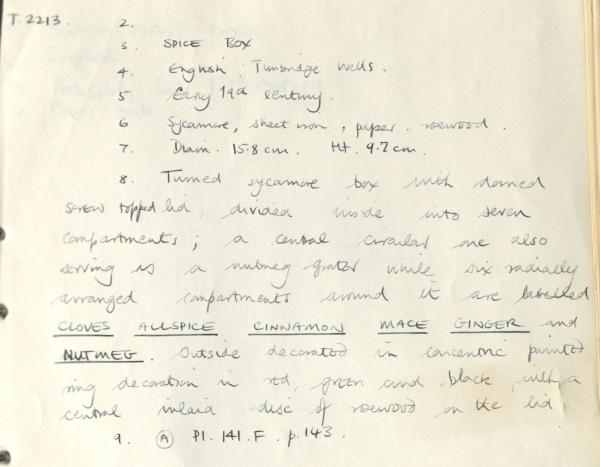 T. 2213. 2.
3. SPICE BOX
4. English. Tunbridge Wells.
5 Early 19th Century.
6 Sycamore, sheet iron, paper. rosewood.
7. Diam. 15.8 cm. Ht. 9.2 cm.
8. Turned sycamore box with domed
screw topped lid, divided inside into seven
compartments; a central circular one also
serving as a nutmeg grater while six radially
arranged compartments around it are labelled
CLOVES ALLSPICE CINNAMON MACE GINGER and
NUTMEG. Outside decorated in concentric painted
ring decoration in red, green and black, with a
central inlaid disc of rosewood on the lid
9. A Pl. 141. F. p. 143.